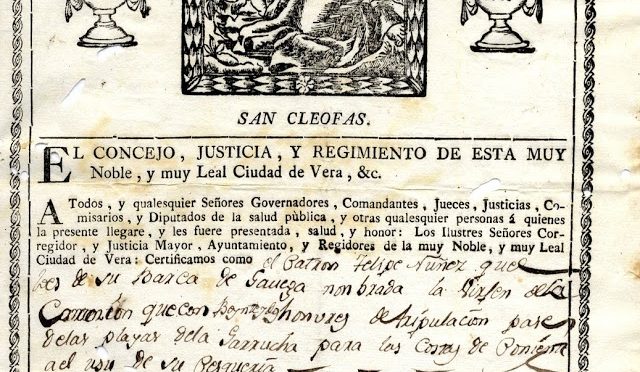 SAN CLEOFAS.
EL CONCEJO, JUSTICIA, Y REGIMIENTO DE ESTA MUY
Noble, y muy Leal Ciudad de Vera, &c.
A Todos, y qualesquier Señores Governadores, Comandantes, Jueces, Justicias, Co-
misarios, y Diputados de la salud pública, y otras qualesquier personas á quienes
la presente llegare, y les fuere presentada, salud, y honor: Los Ilustres Señores Cor-
regidor, y Justicia Mayor, Ayuntamiento, y Regidores de la muy Noble, y muy Leal
Ciudad de Vera: Certificamos como el Patron Felipe Nuñez que
es de su Barca de nonbrada la Virsen de la
que con honvres de tripulacion pase
de las playas de la Garrucha para las Costas de Poniente
a el uso de su Pesqueria